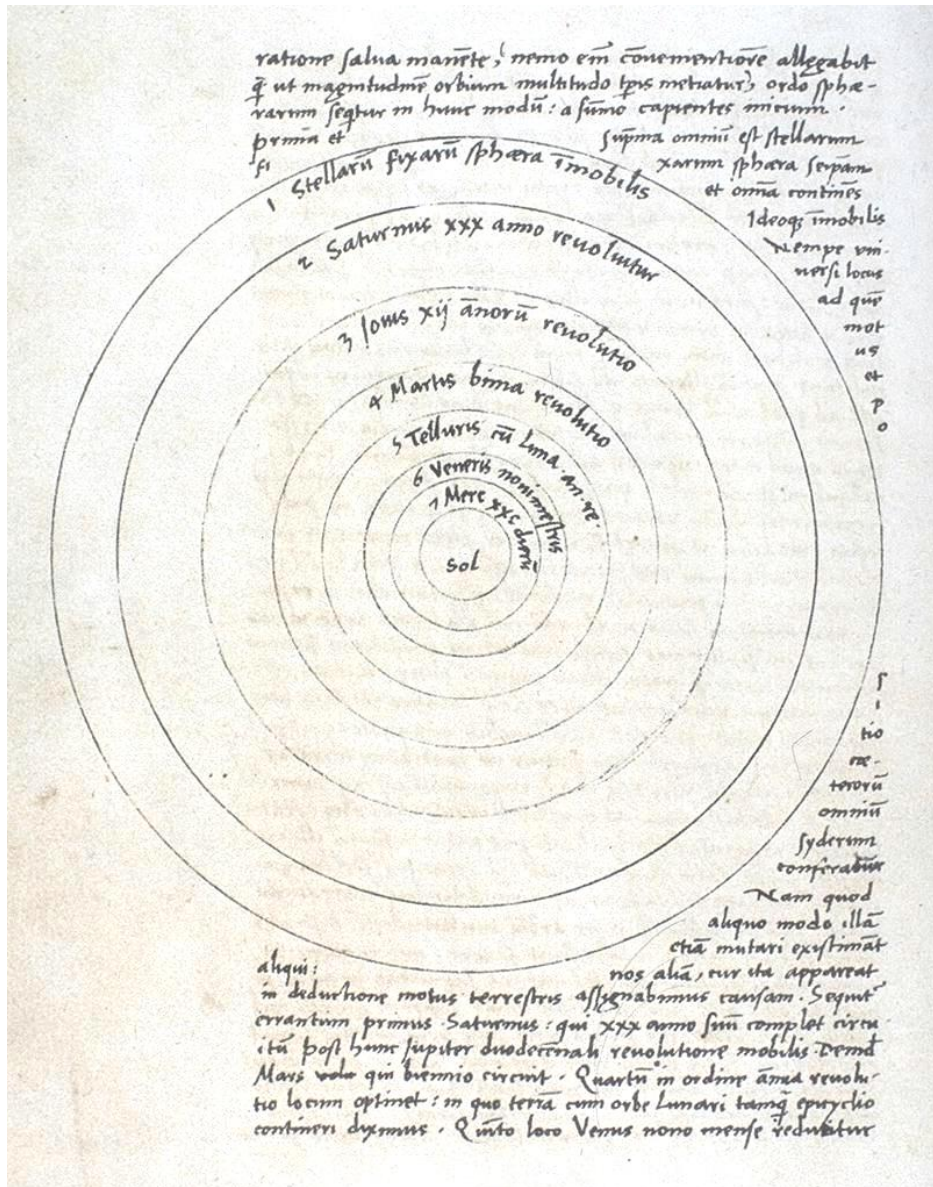 ratione salva manēte, nemo em̄ cōvenientiorē allegabit
q̄ ut magnitudinē orbium multitudo tp̄is metiatur, ordo sphæ-
rarum seqtur in hunc modū: a sūmo capientes inicium.
prima et suprēma omniū est stellarum
fi xarum sphæra seipam
et omīa continēs
Ideoq; īmobilis
Nempe uni-
uersi locus
ad quē
mot
us
et
p
o
1 Stellarū fixarū sphæra īmobilis
2 Saturnus xxx anno reuoluitur
3 Jouis xij ānorū reuolutio
4 Martis bima reuolutio
5 Telluris cū Luna. an. re.
6 Veneris nonimestris
7 Merc xxc dierū
Sol
s
i
tio
cæ-
terorū
omniū
syderum
conferatur
Nam quod
aliquo modo illā
etiā mutari existimāt
aliqui: nos aliā, cur ita appareat
in deductione motus terrestris assignabimus causam. Sequit̄
errantium primus Saturnus: qui xxx anno suū complet circu
itū post hunc Jupiter duodecēnali reuolutione mobilis. Deīnd
Mars qui biennio circuit. Quartū in ordine ānua reuolu-
tio locum optinet: in quo terrā cum orbe Lunari tamq̄ epicyclio
contineri diximus. Quinto loco Venus nono mense reducitur